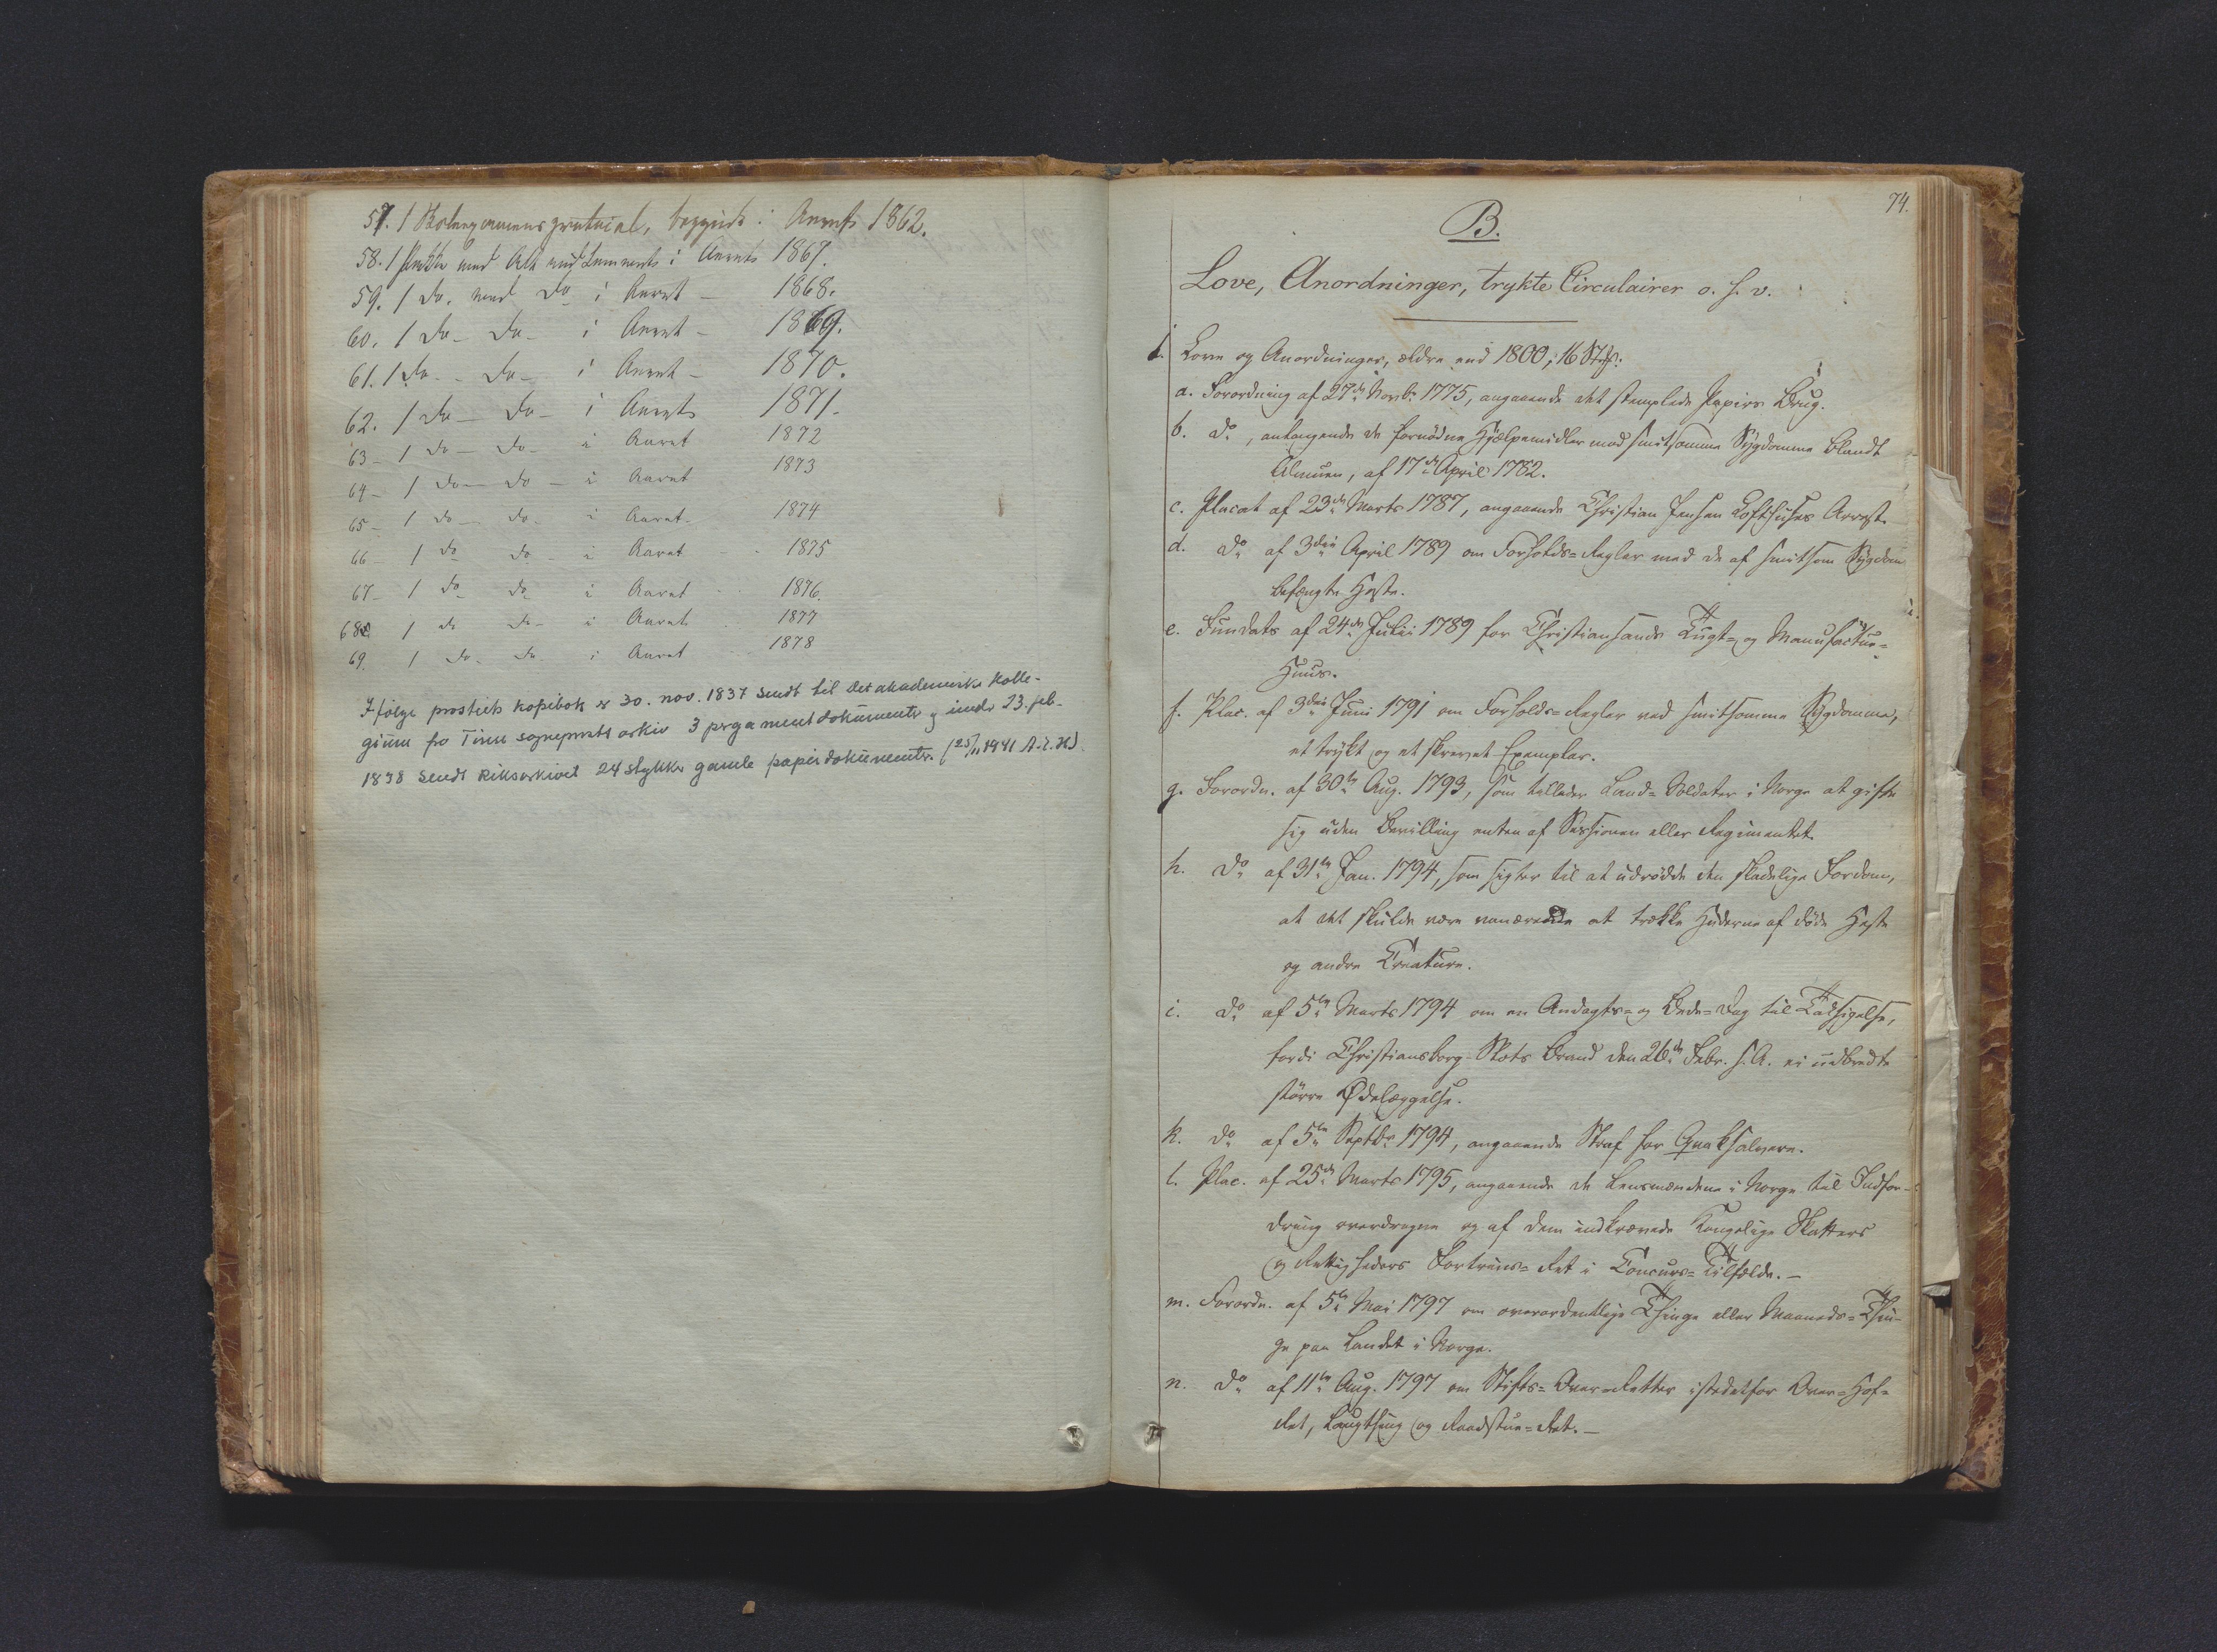 57. 1 Skoleexamensprotocol, begyndt i Aaret 1862.
58. 1 Pakke med Alt indkommends i Aaret 1867.
59. 1 do. med do i Aaret – 1868.
60. 1 do – do – i Aaret – 1869.
61. 1 do – do – i Aaret – 1870.
62. 1 do – do – i Aaret 1871.
63 – 1 do – do – i Aaret 1872
64 – 1 do – do – i Aaret 1873
65 – 1 do – do – i Aaret 1874
66 – 1 do do – i Aaret 1875
67 – 1 do do i Aaret 1876.
68 1 do do – i Aaret 1877
69. 1 do – do – i Aaret 1878
Ifølge prostiets kopibok er 30. nov. 1837 sendt til Det akademiske Kolle-
gium fra Tinn sogneprests arkiv 3 pergamentdokumenter og under 23. feb.
1838 sendt Riksarkivet 24 stykker gamle papirdokumenter. (25/11 1941 A.L.H)
74.
B.
Love, Anordninger, trykte Circulairer o. s. v.
1. Love og Anordninger, ældre end 1800, 16 Stkr:
a. Forordning af 27de Novbr 1775, angaaende det stemplede Papirs Brug.
b. do, anlangende de fornødne Hjælpemidler mod smitsomme Sygdomme blandt
Almuen, af 17de April 1782.
c. Placat af 23de Marts 1787, angaaende Christian Jensen Lofthuses Arrest.
d. do af 3die April 1789 om Forholds-Regler med de af smitsom Sygdom
befængte Heste.
e. Fundats af 24de Julii 1789 for Christiansands Tugt- og Manufactur-
Huus.
f. Plac. af 3die Juni 1791 om Forholds-Regler ved smitsomme Sygdomme,
et trykt og et skrevet Exemplar.
g. Forordn. af 30te Aug. 1793, som tillader Land-Soldater i Norge at gifte
sig uden Bevilling enten af Sessionen eller Regimentet.
h. do af 31te Jan. 1794, som sigter til at udrødde den skadelige Fordom,
at det skulde være vanærende at trække Huderne af døde Heste
og andre Creature.
i. do af 5te Marts 1794 om en Andagts- og Bede-Dag til Taksigelse,
fordi Christiansborg-Slots Brand den 26de Febr. s. A. ei udbredte
større Ødelæggelse.
k. do af 5te Septbr 1794, angaaende Straf for Quaksalvere.
l. Plac. af 25de Marts 1795, angaaende de Lensmændene i Norge til Indfor-
dring overdragne og af dem indkrævede Kongelige Skatters
og Rettigheders Fortrins-Ret i Concurs-Tilfælde. –
m. Forordn. af 5te Mai 1797 om overordentlige Thinge eller Maaneds-Thin-
ge paa Landet i Norge.
n. do af 11te Aug. 1797 om Stifts-Over-Retter istedetfor Over-Hof-
Ret, Laugthing og Raadstue-Ret. –